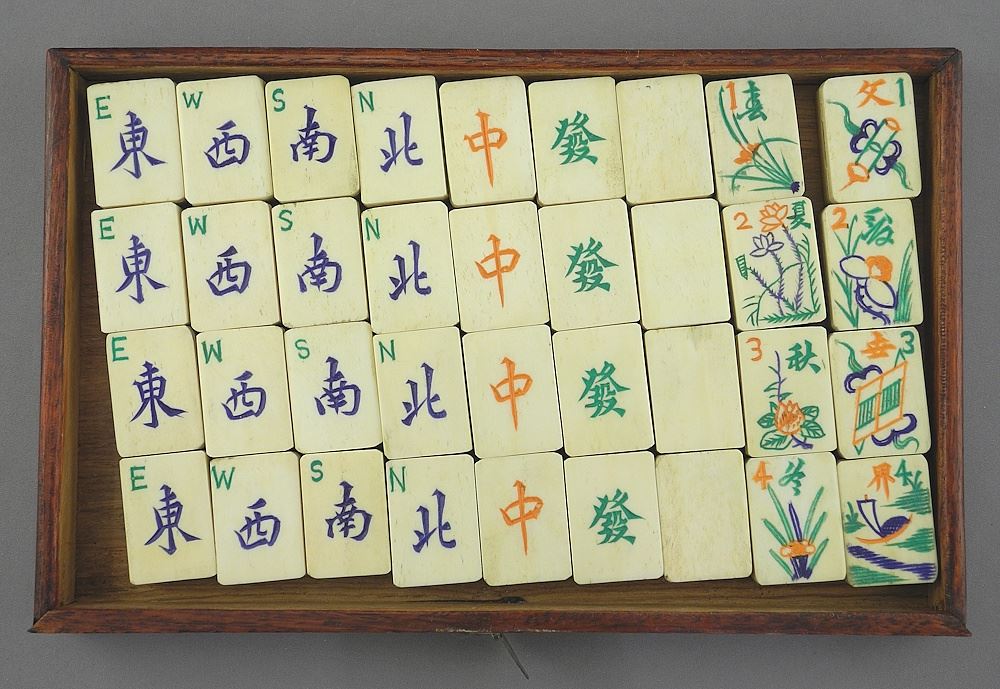 E 東 W 西 S 南 N 北 中 發 1 春 文 1
E 東 W 西 S 南 N 北 中 發 2 夏 2
E 東 W 西 S 南 N 北 中 發 3 秋 3
E 東 W 西 S 南 N 北 中 發 4 冬 界 4